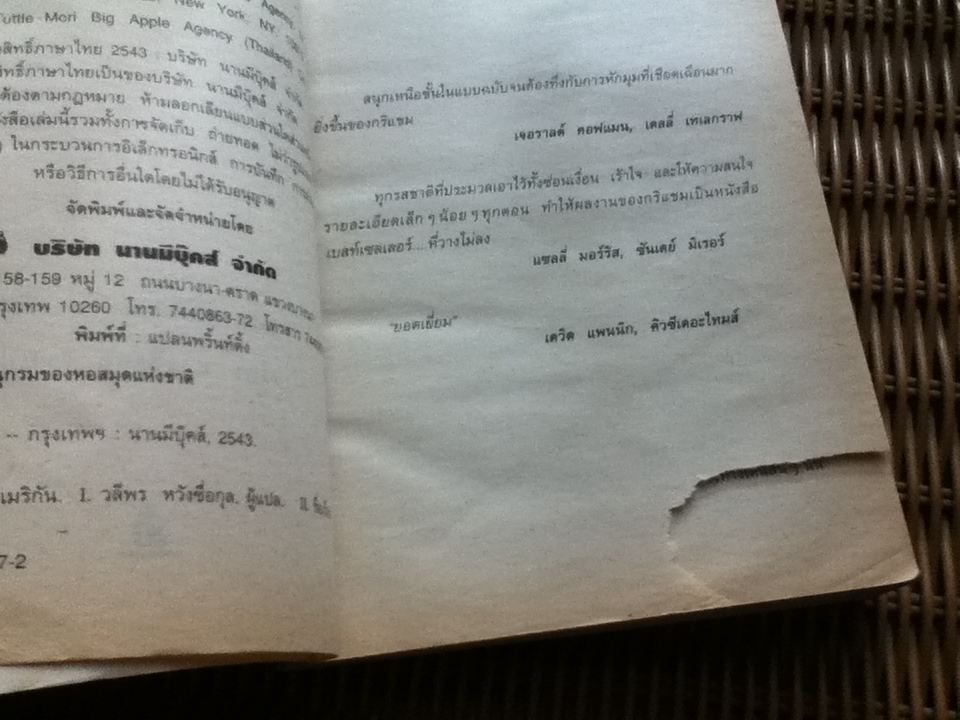 Agency,
New York, NY
Tuttle-Mori Big Apple Agency (Thailand)
สิทธิ์ภาษาไทย 2543 : บริษัท นานมีบุ๊คส์ จำกัด
สิทธิ์ภาษาไทยเป็นของบริษัท นานมีบุ๊คส์ จำกัด
ต้องตามกฎหมาย ห้ามลอกเลียนแบบส่วนใดส่วน
สือเล่มนี้รวมทั้งการจัดเก็บ ถ่ายทอด ไม่ว่า
ในกระบวนการอิเล็กทรอนิกส์ การบันทึก
หรือวิธีการอื่นใดโดยไม่ได้รับอนุญาต
จัดพิมพ์และจัดจำหน่ายโดย
บริษัท นานมีบุ๊คส์ จำกัด
58-159 หมู่ 12 ถนนบางนา-ตราด แขวงบางนา
กรุงเทพ 10260 โทร. 7440863-72 โทรสาร
พิมพ์ที่ : แปลนพริ้นท์ติ้ง
นุกรมของหอสมุดแห่งชาติ
-- กรุงเทพฯ : นานมีบุ๊คส์, 2543.
เมริกัน. I. วลีพร หวังซื่อกุล, ผู้แปล. II.
7-2
สนุกเหนือชั้นในแบบฉบับจนต้องทึ่งกับการหักมุมที่เชือดเฉือนมาก
ยิ่งขึ้นของกริแชม
เจอราลด์ คอฟแมน, เดลลี่ เทเลกราฟ
ทุกรสชาติที่ประมวลเอาไว้ทั้งซ่อนเงื่อน เร้าใจ และให้ความสนใจ
รายละเอียดเล็ก ๆ น้อย ๆ ทุกตอน ทำให้ผลงานของกริแชมเป็นหนังสือ
เบสท์เซลเลอร์.... ที่วางไม่ลง
แซลลี่ มอร์ริส, ซันเดย์ มิเรอร์
"ยอดเยี่ยม"
เดวิด แพนนิก, คิวซีเดอะไทมส์